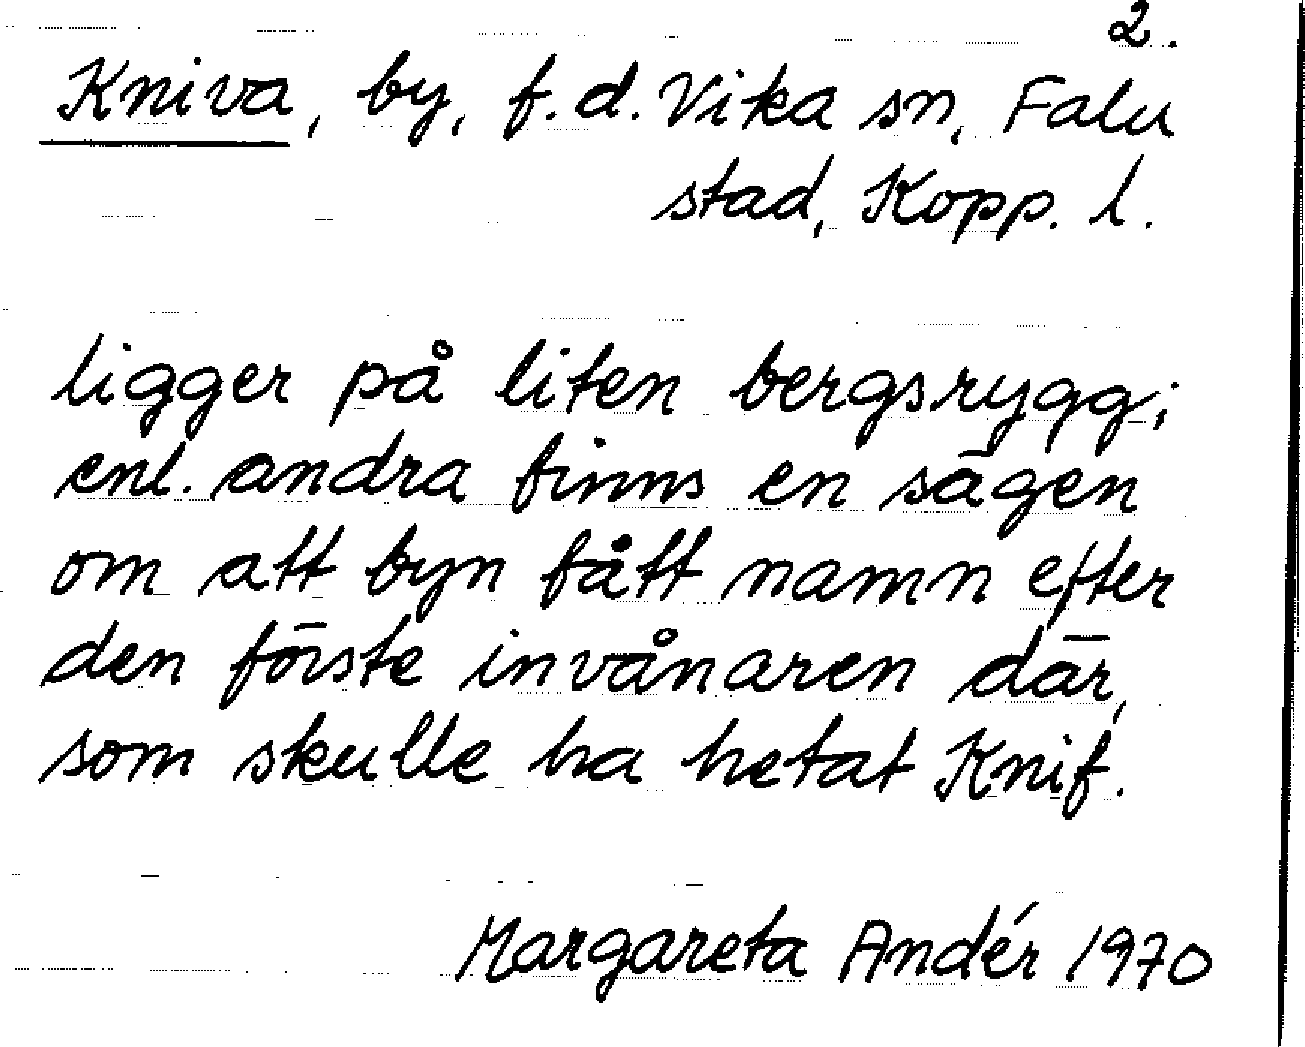 2.
Kniva, by, f.d. Vika sn, Falu
stad, Kopp. l.
ligger på liten bergsrygg;
enl. andra finns en sägen
om att byn fått namn efter
den förste invånaren där,
som skulle ha hetat Knif.
Margareta Andér 1970